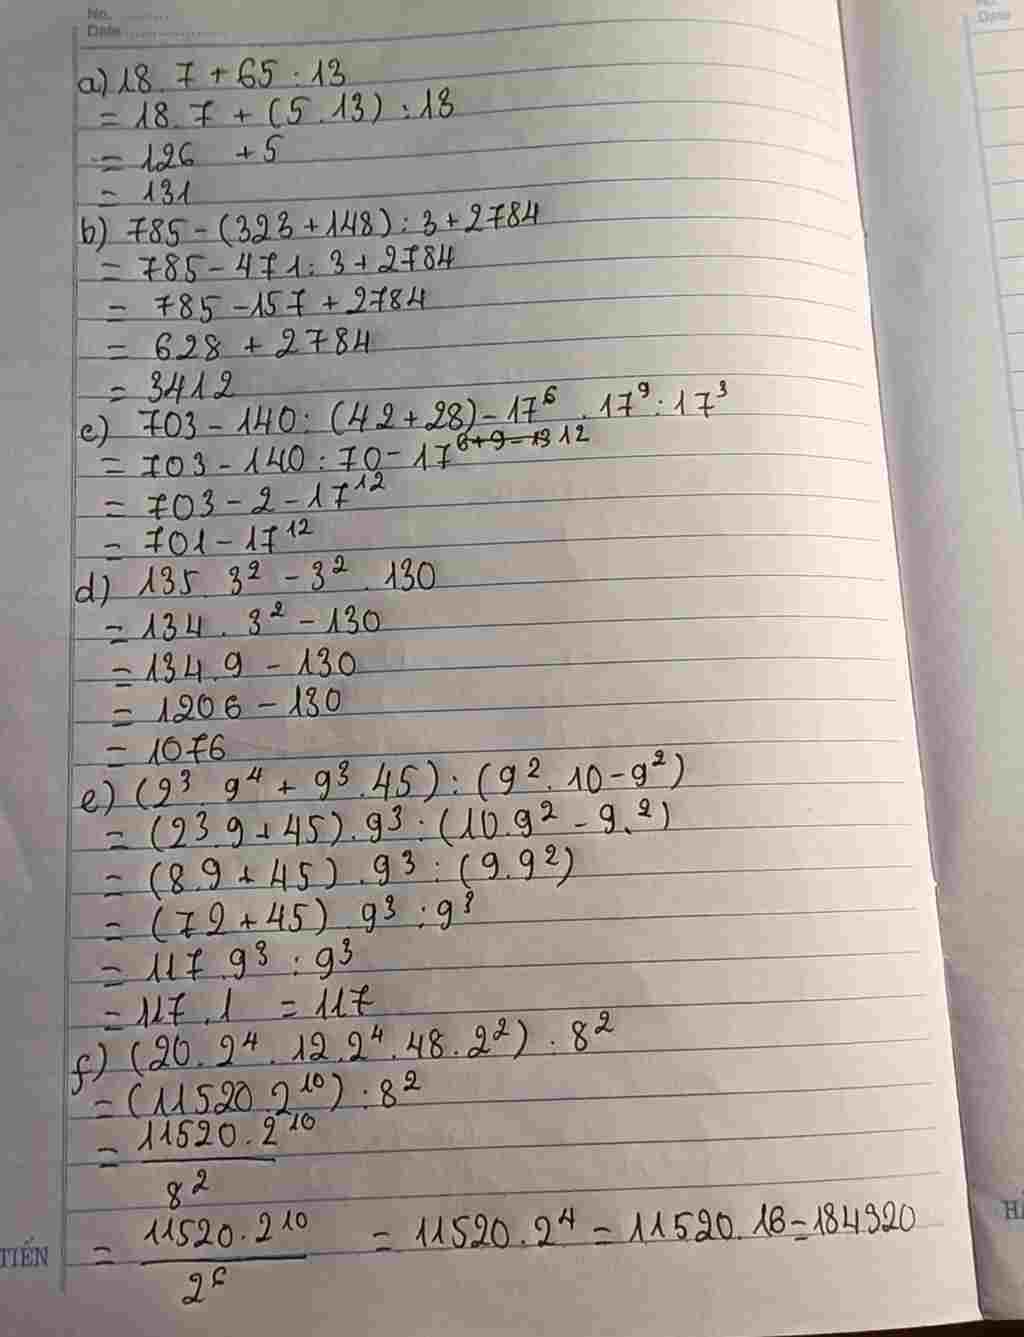 No.
Date
Date
a) 18 . 7 + 65 : 13
= 18 . 7 + (5 . 13) : 13
= 126 + 5
= 131
b) 785 - (323 + 148) : 3 + 2784
= 785 - 471 : 3 + 2784
= 785 - 157 + 2784
= 628 + 2784
= 3412
c) 703 - 140 : (42 + 28) - 17⁶ . 17⁹ : 17³
= 703 - 140 : 70 - 17¹²
= 703 - 2 - 17¹²
= 701 - 17¹²
d) 135 . 3² - 3² . 130
= 134 . 3² - 130
= 134 . 9 - 130
= 1206 - 130
= 1076
e) (2³ . 9⁴ + 9³ . 45) : (9² . 10 - 9²)
= (2³ . 9 + 45) . 9³ : (10 . 9² - 9.²)
= (8 . 9 + 45) . 9³ : (9 . 9²)
= (72 + 45) . 9³ : 9³
= 117 . 9³ : 9³
= 117 . 1 = 117
f) (20 . 2⁴ . 12 . 2⁴ . 48 . 2²) : 8²
= (11520 . 2¹⁰) : 8²
= 11520 . 2¹⁰
8²
= 11520 . 2¹⁰ = 11520 . 2⁴ = 11520 . 16 = 184320
2⁶
TIẾN